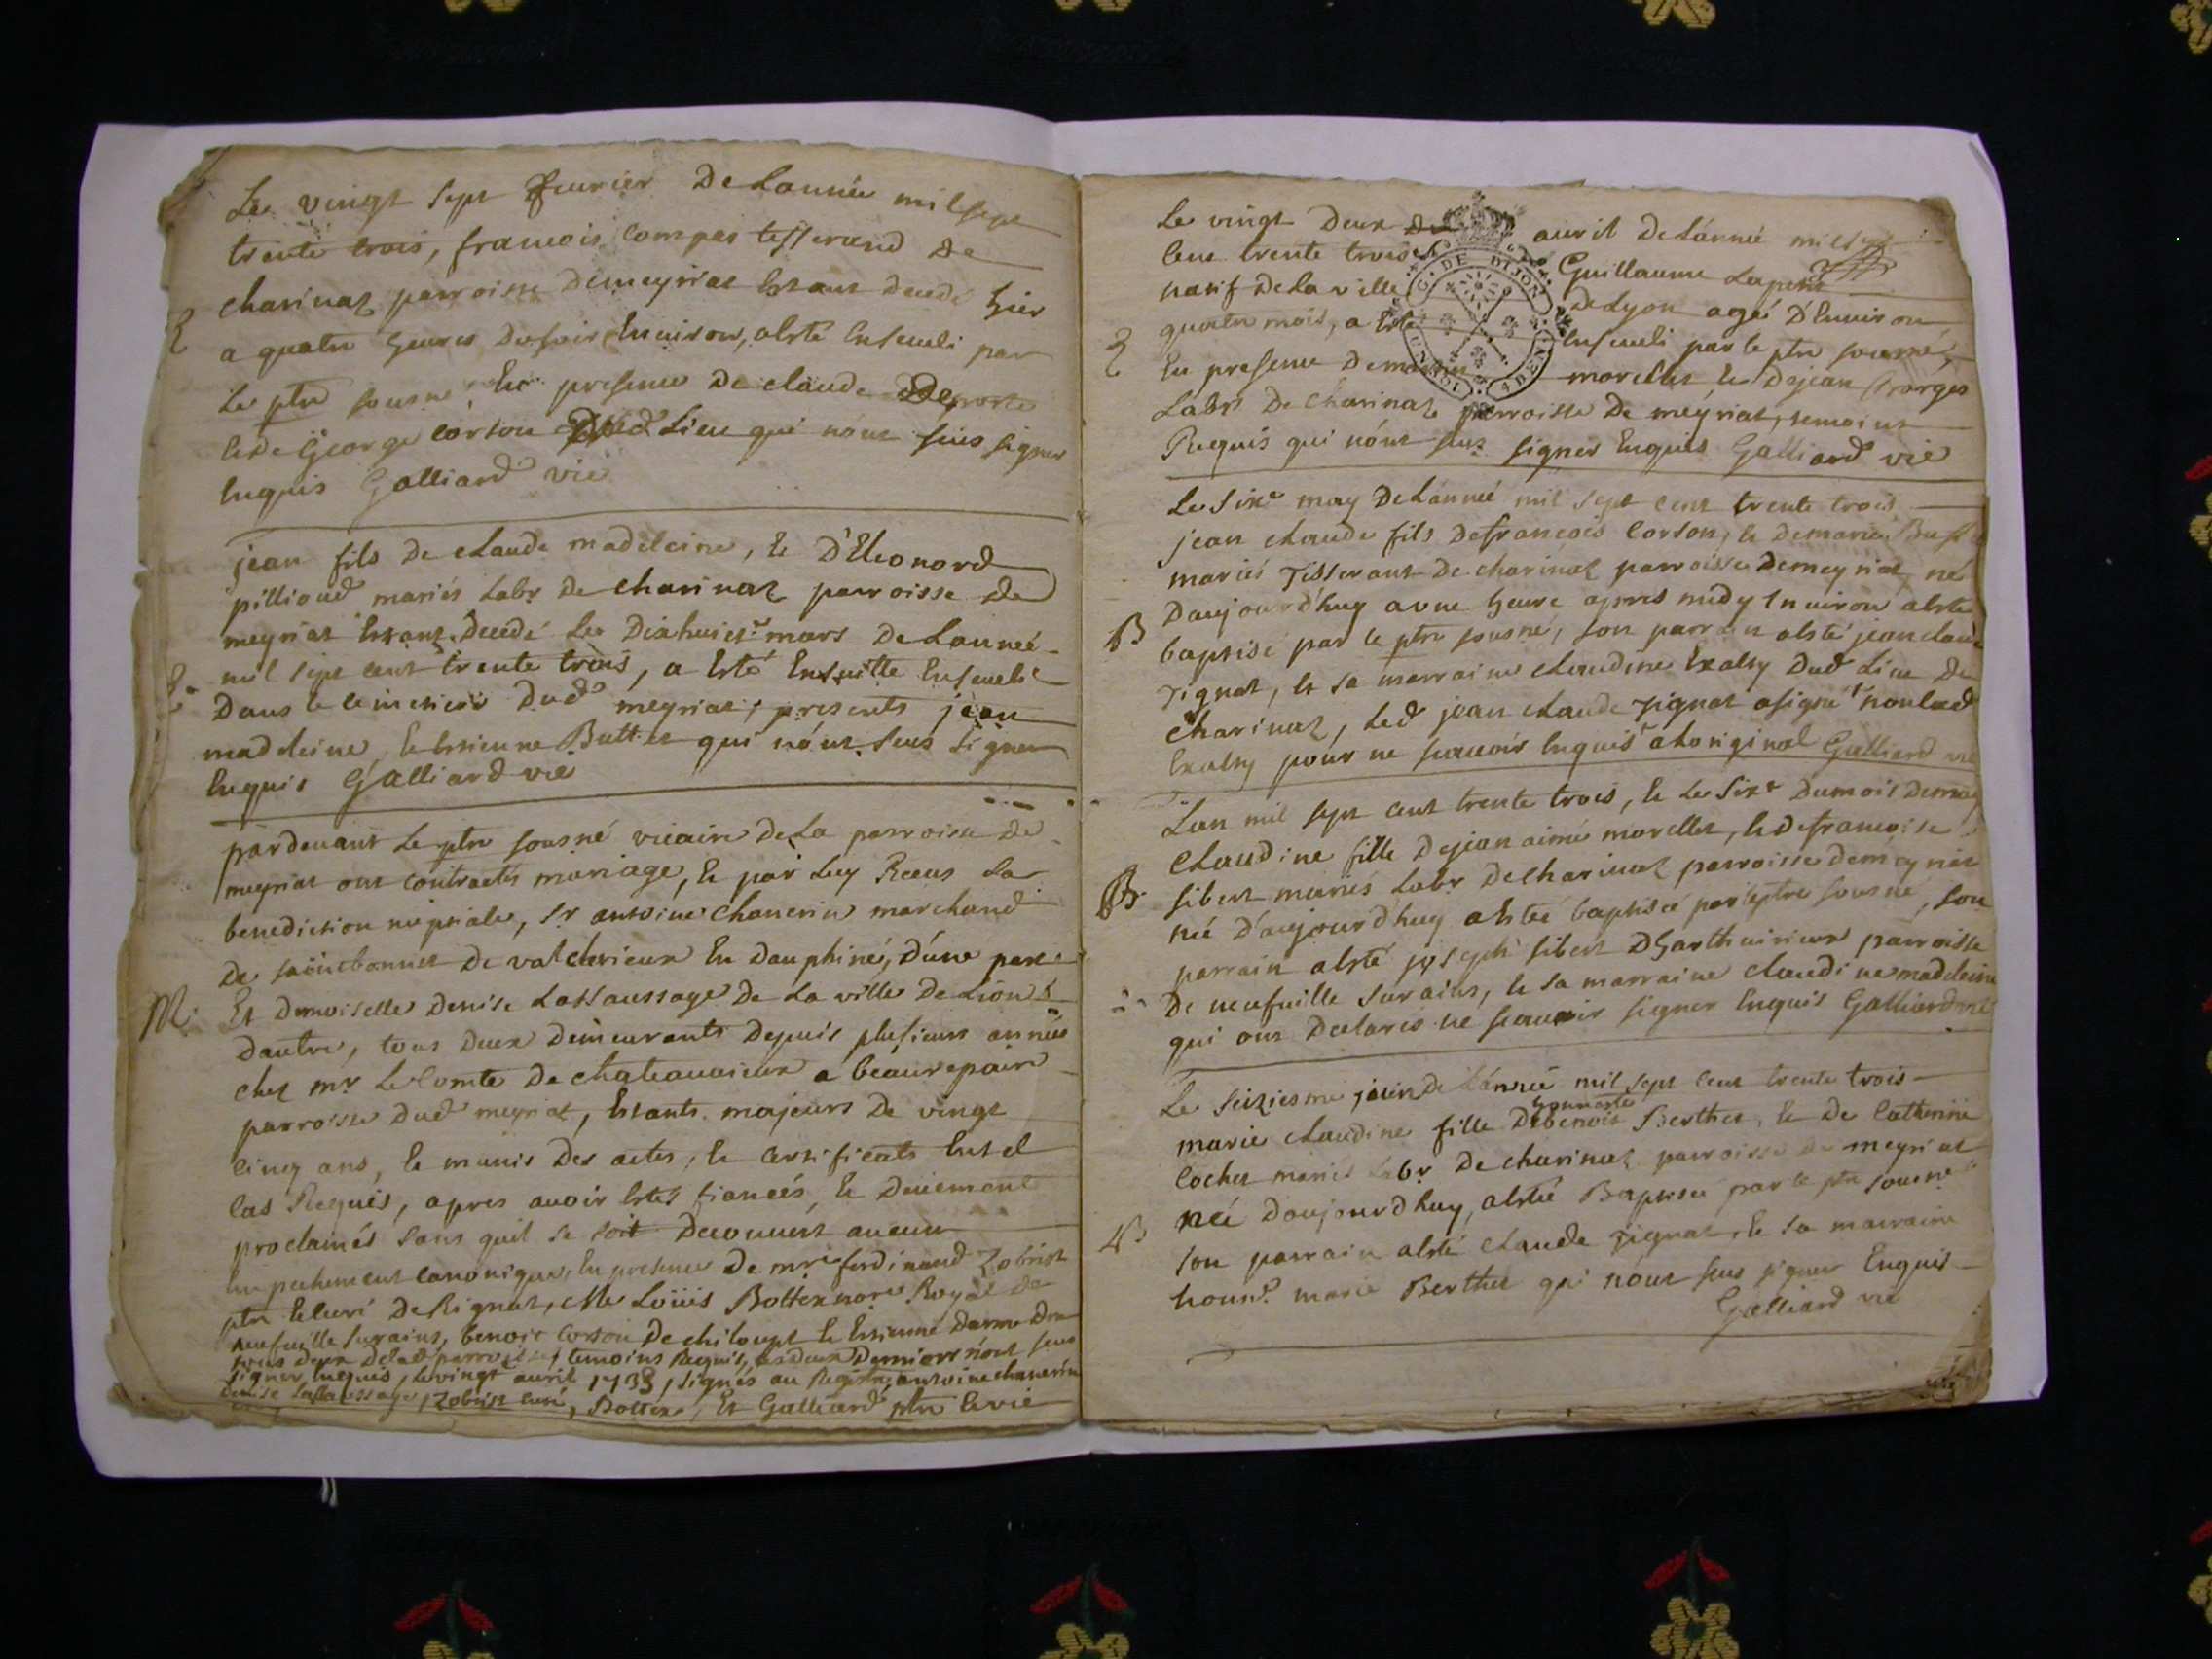 Le vingt sept feurier De Lannée mil sept
trente trois, francois Compas tisserand De
charinaz parroisse Demeyriat Estant Decedé hier
a quatre heures Dusoir Enuiron, aesté Enseueli par
Le ptre sousné, En presence De claude
et De George Corson Dud Lieu qui nónt sçus signer
Enquis Galliard vic
jean fils De claude madeleine, et D'Eleonord
pillioud mariés Labr De charinaz parroisse De
meyriat Estant Decedé Le Dixhuict.e mars De Lanneé
mil sept cent trente trois, a Esté Ensuitte Enseueli
Dans le cimetiere Dud meyriat, presents jean
madeleine, et Estienne Buttet qui nónt sçus signer
Enquis Galliard vic
pardeuant Le ptre sousné vicaire De La parroisse De
meyriat ont contractés mariage, et par Luy Receus La
benediction nuptiale, Sr antoine Chanerin marchand
De sainct bonnet De valclerieux En Dauphiné, D'une part
M. Et Dmoiselle Denise Lassaussaye De La ville De Lion
Dautre, tous Deux Demeurants Depuis plusieurs années
chez mr Le Comte De chateauuieux a beaurepaire
parroisse Dud meyriat, Estants majeurs De vingt
cinq ans, et munis Des actes, et certificats En tel
cas Requis, apres auoir Estés fiancés, et Duement
proclamés sans quil se soit Decouuert aucun
Empechement canonique, En presence De mre ferdinand Zobrist
ptre et curé De Rignat, Me Loüis Bottex nore Royal De
neufuille surains, benoit Corson De chiloup et Estienne Darme
tous Deux Delad parroisse, temoins Requis, les Deux Derniers nónt sçus
signer Enquis, Le vingt auril 1733, signés au Registre antoine chanerin
Denise Lassaussaye, Zobrist curé, Bottex, Et Galliard ptre et vic
Le vingt Deux auril De Lánnée mil sept
Cent trente trois Guillaume
natif De La ville De Lyon agé D'Enuiron
quatre mois, a Esté Enseueli par le ptre sousné,
En presence De morellet et De jean Georges
Labrs De Charinaz parroisse De meyriat, temoins
Requis qui nónt sçus signer Enquis Galliard vic
Le Sixe may De Lánneé mil sept cent trente trois
jean claude fils De francois Corson, et De marie
mariés Tisserant De charinaz parroisse Demeyriat, né
B Daujourd'huy a vne heure apres midy Enuiron aesté
baptisé par le ptre sousné, son parrain aesté jean claude
Tignat, et sa marraine claudine Dud Lieu De
Charinaz, Led jean claude Tignat a signé non lad
pour ne sçauoir Enquis a Loriginal Galliard vic
Lan mil sept cent trente trois, et Le Sixe Dumois Demay
Claudine fille De jean aimé morellet, et De francoise
B. sibert mariés Labr De charinaz parroisse Demeyriat
neé D'aujourd'huy a Esteé baptiseé par le ptre sousné, son
parrain aesté joseph sibert parroisse
De neufuille surains, et sa marraine claudine madeleine
qui ont Declarés ne sçauoir signer Enquis Galliard vic
Le seiziesme juin De Lánneé mil sept Cent trente trois
honneste
marie claudine fille De benoit Berthet, et De Catherine
Cochet mariés Labr De charinaz parroisse De meyriat
neé Daujourd'huy, aestée Baptiseé par le ptre sousné
B son parrain aesté claude Tignat, et sa marraine
honne. marie Berthet qui nónt sçus signer Enquis
Galliard vic
G. DE DIJON
4 DEN.